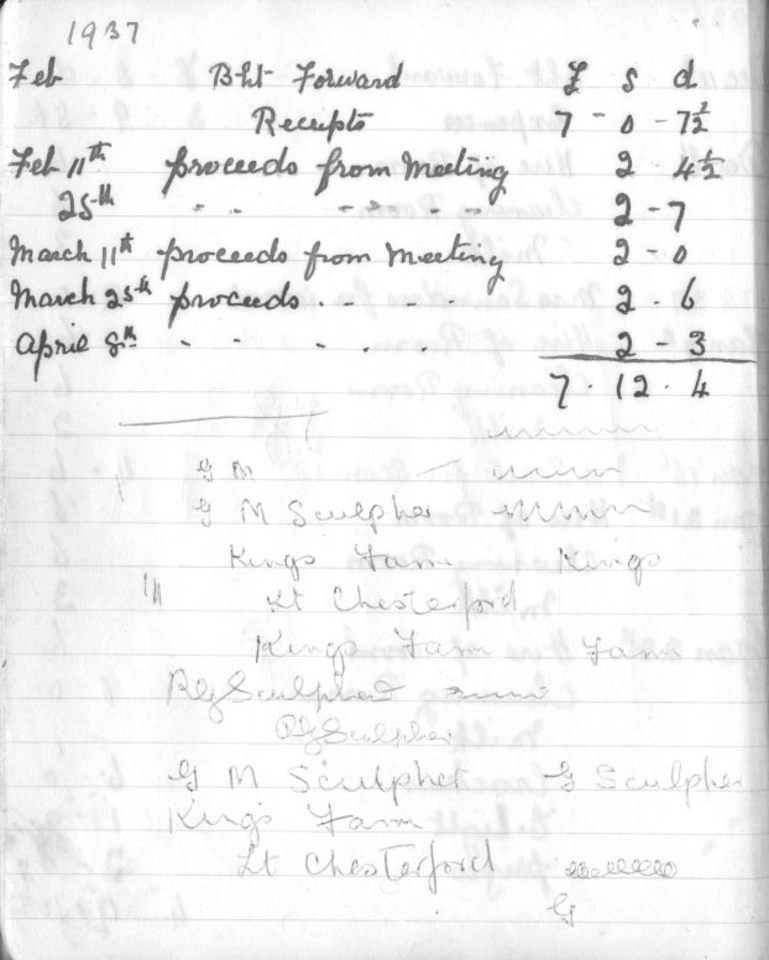 1937
Feb Bht Forward £ s d
Receipts 7 - 0 - 7½
Feb 11th proceeds from Meeting 2 - 4½
25th " " " " " " 2 - 7
March 11th proceeds from Meeting 2 - 0
March 25th proceeds . - - - 2 . 6
April 8th - - - - . . 2 - 3
7 . 12 . 4
G M
G M Sculpher
Kings Farm Kings
Lt Chesterford
Kings Farm Farm
RG Sculpher
RG Sculpher
G M Sculpher G Sculpher
Kings Farm
Lt Chesterford
G